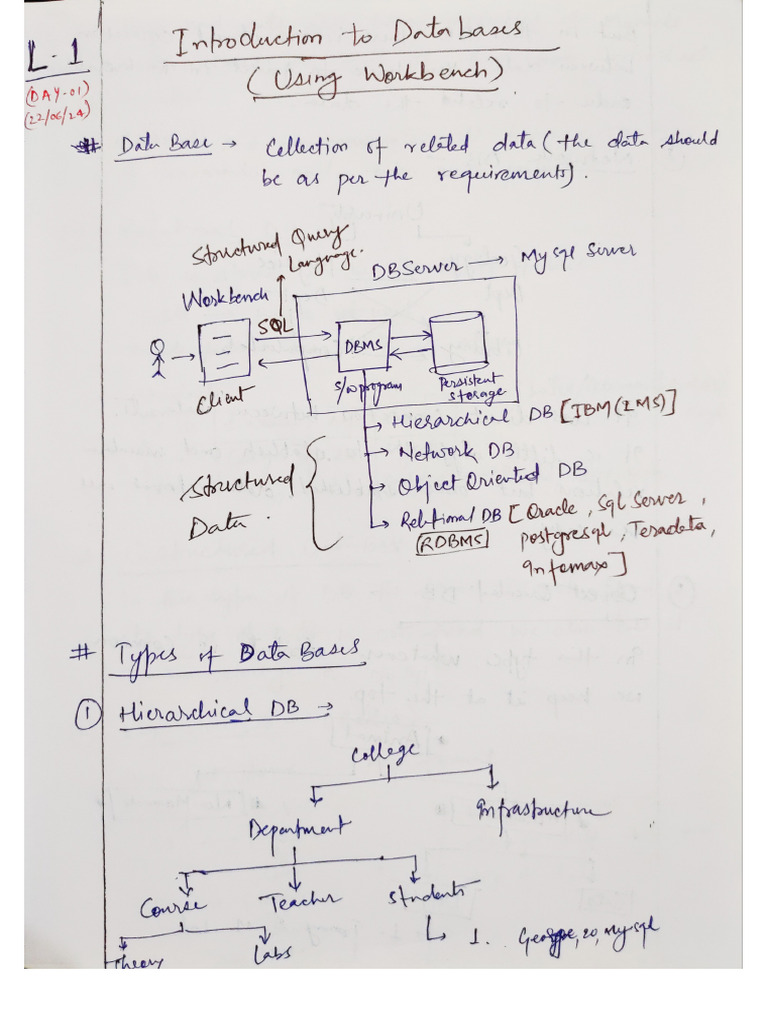 L-1
(DAY-01)
(22/06/24)
Introduction to Databases
(Using Workbench)
# Data Base → Collection of related data (the data should
be as per the requirements).
Structured Query
Language.
DBServer → Mysql Server
Workbench
SQL
DBMS
Client
S/w program
Persistent
storage
→ Hierarchical DB [IBM(IMS)]
→ Network DB
→ Object Oriented DB
→ Relational DB [Oracle, Sql Server,
(RDBMS) postgresql, Teradata,
Infomax]
Structured
Data.
# Types of Data Bases
① Hierarchical DB →
College
Department
Infrastructure
Course
Teacher
Students
Theory
Labs
1. George, 20, Mysql